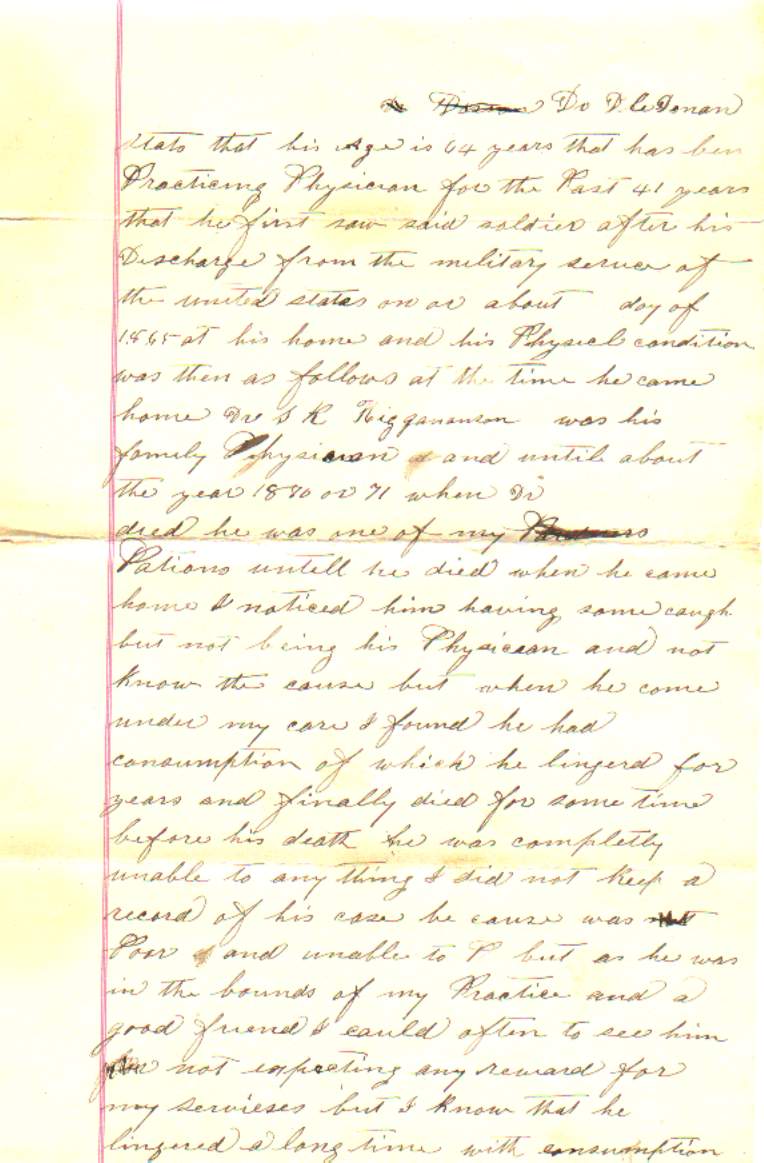 Dr D
stats that his Age is 64 years that has ben
Practicing Physician for the Past 41 years
that he first saw said soldier after his
Discharge from the military service of
the united states on or about day of
1865 at his home and his Physicl condition
was then as follows at the time he came
home Dr S R was his
family Physician and until about
the year 1870 or 71 when Dr
died he was one of my
Pations untell he died when he came
home I noticed him having some caugh
but not being his Physician and not
Know the cause but when he come
under my care I found he had
consumption of which he lingerd for
years and finally died for some time
before his death he was completly
unable to any thing I did not Keep a
record of his case be cause was
Poor and unable to P but as he was
in the bounds of my Practice and a
good friend I could often to see him
not expecting any reward for
my servieses but I Know that he
lingered a long time with consumption